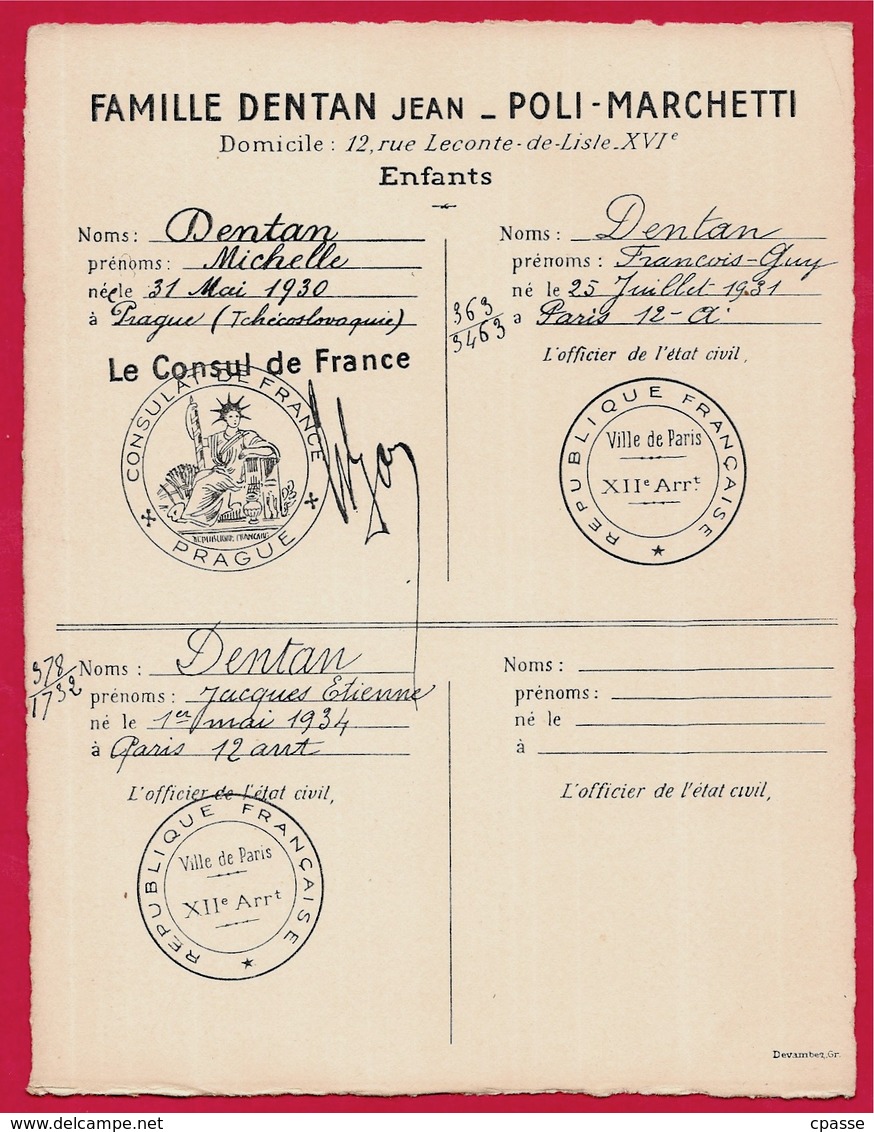 FAMILLE DENTAN JEAN _ POLI-MARCHETTI
Domicile : 12, rue Leconte-de-Lisle_XVIe
Enfants
Noms : Dentan
prénoms : Michelle
née le 31 Mai 1930
à Prague (Tchécoslovaquie)
Le Consul de France
CONSULAT DE FRANCE
PRAGUE
REPUBLIQUE FRANÇAISE
Noms : Dentan
prénoms : Francois-Guy
né le 25 Juillet 1931
a Paris 12-A^t
363
3463
L'officier de l'état civil,
REPUBLIQUE FRANÇAISE
Ville de Paris
XIIe Arrt.
Noms : Dentan
378
1732
prénoms : Jacques Etienne
né le 1er mai 1934
à Paris 12 arrt
L'officier de l'état civil,
REPUBLIQUE FRANÇAISE
Ville de Paris
XIIe Arrt
Noms :
prénoms :
né le
à
L'officier de l'état civil,
Devambez, Gr.
delcampe.net
cpasse